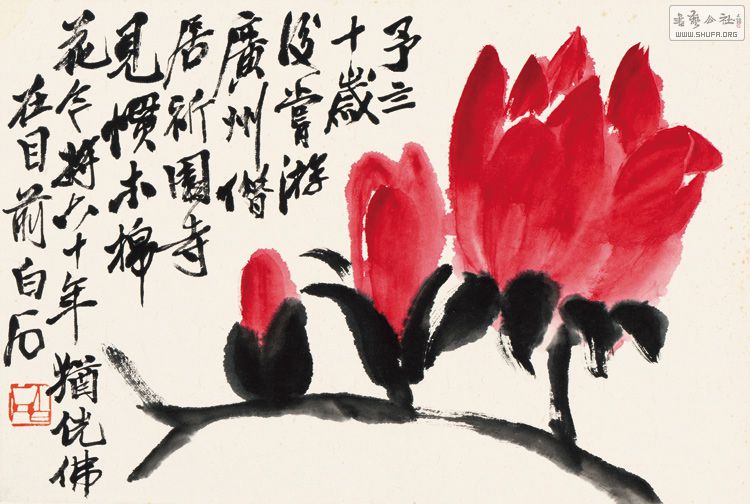 予三
十歲
後嘗游
廣州借
居祈園寺
見慣木棉
花今將六十年猶恍佛
在目前白石
书艺公社
WWW.SHUFA.ORG